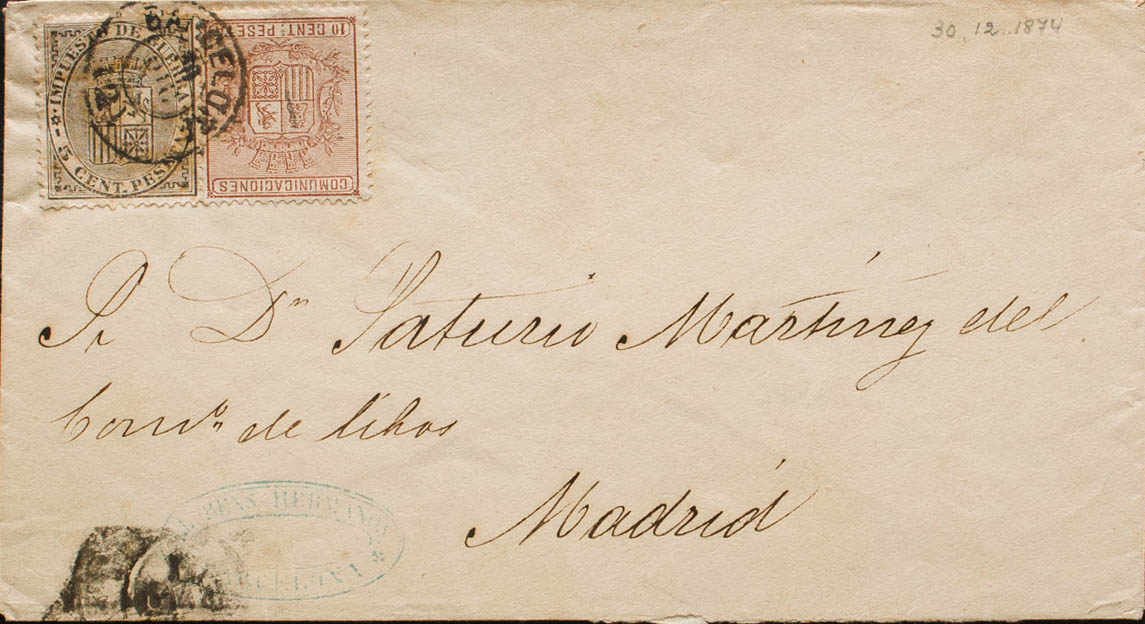 30.12.1874
IMPUESTO DE GUERRA
5 CENT. PESETA
10 CENT: PESETA
COMUNICACIONES
BARCELONA
DIC
A Dn Saturio Martinez del
de
Madrid
HERMANOS
BARCELONA